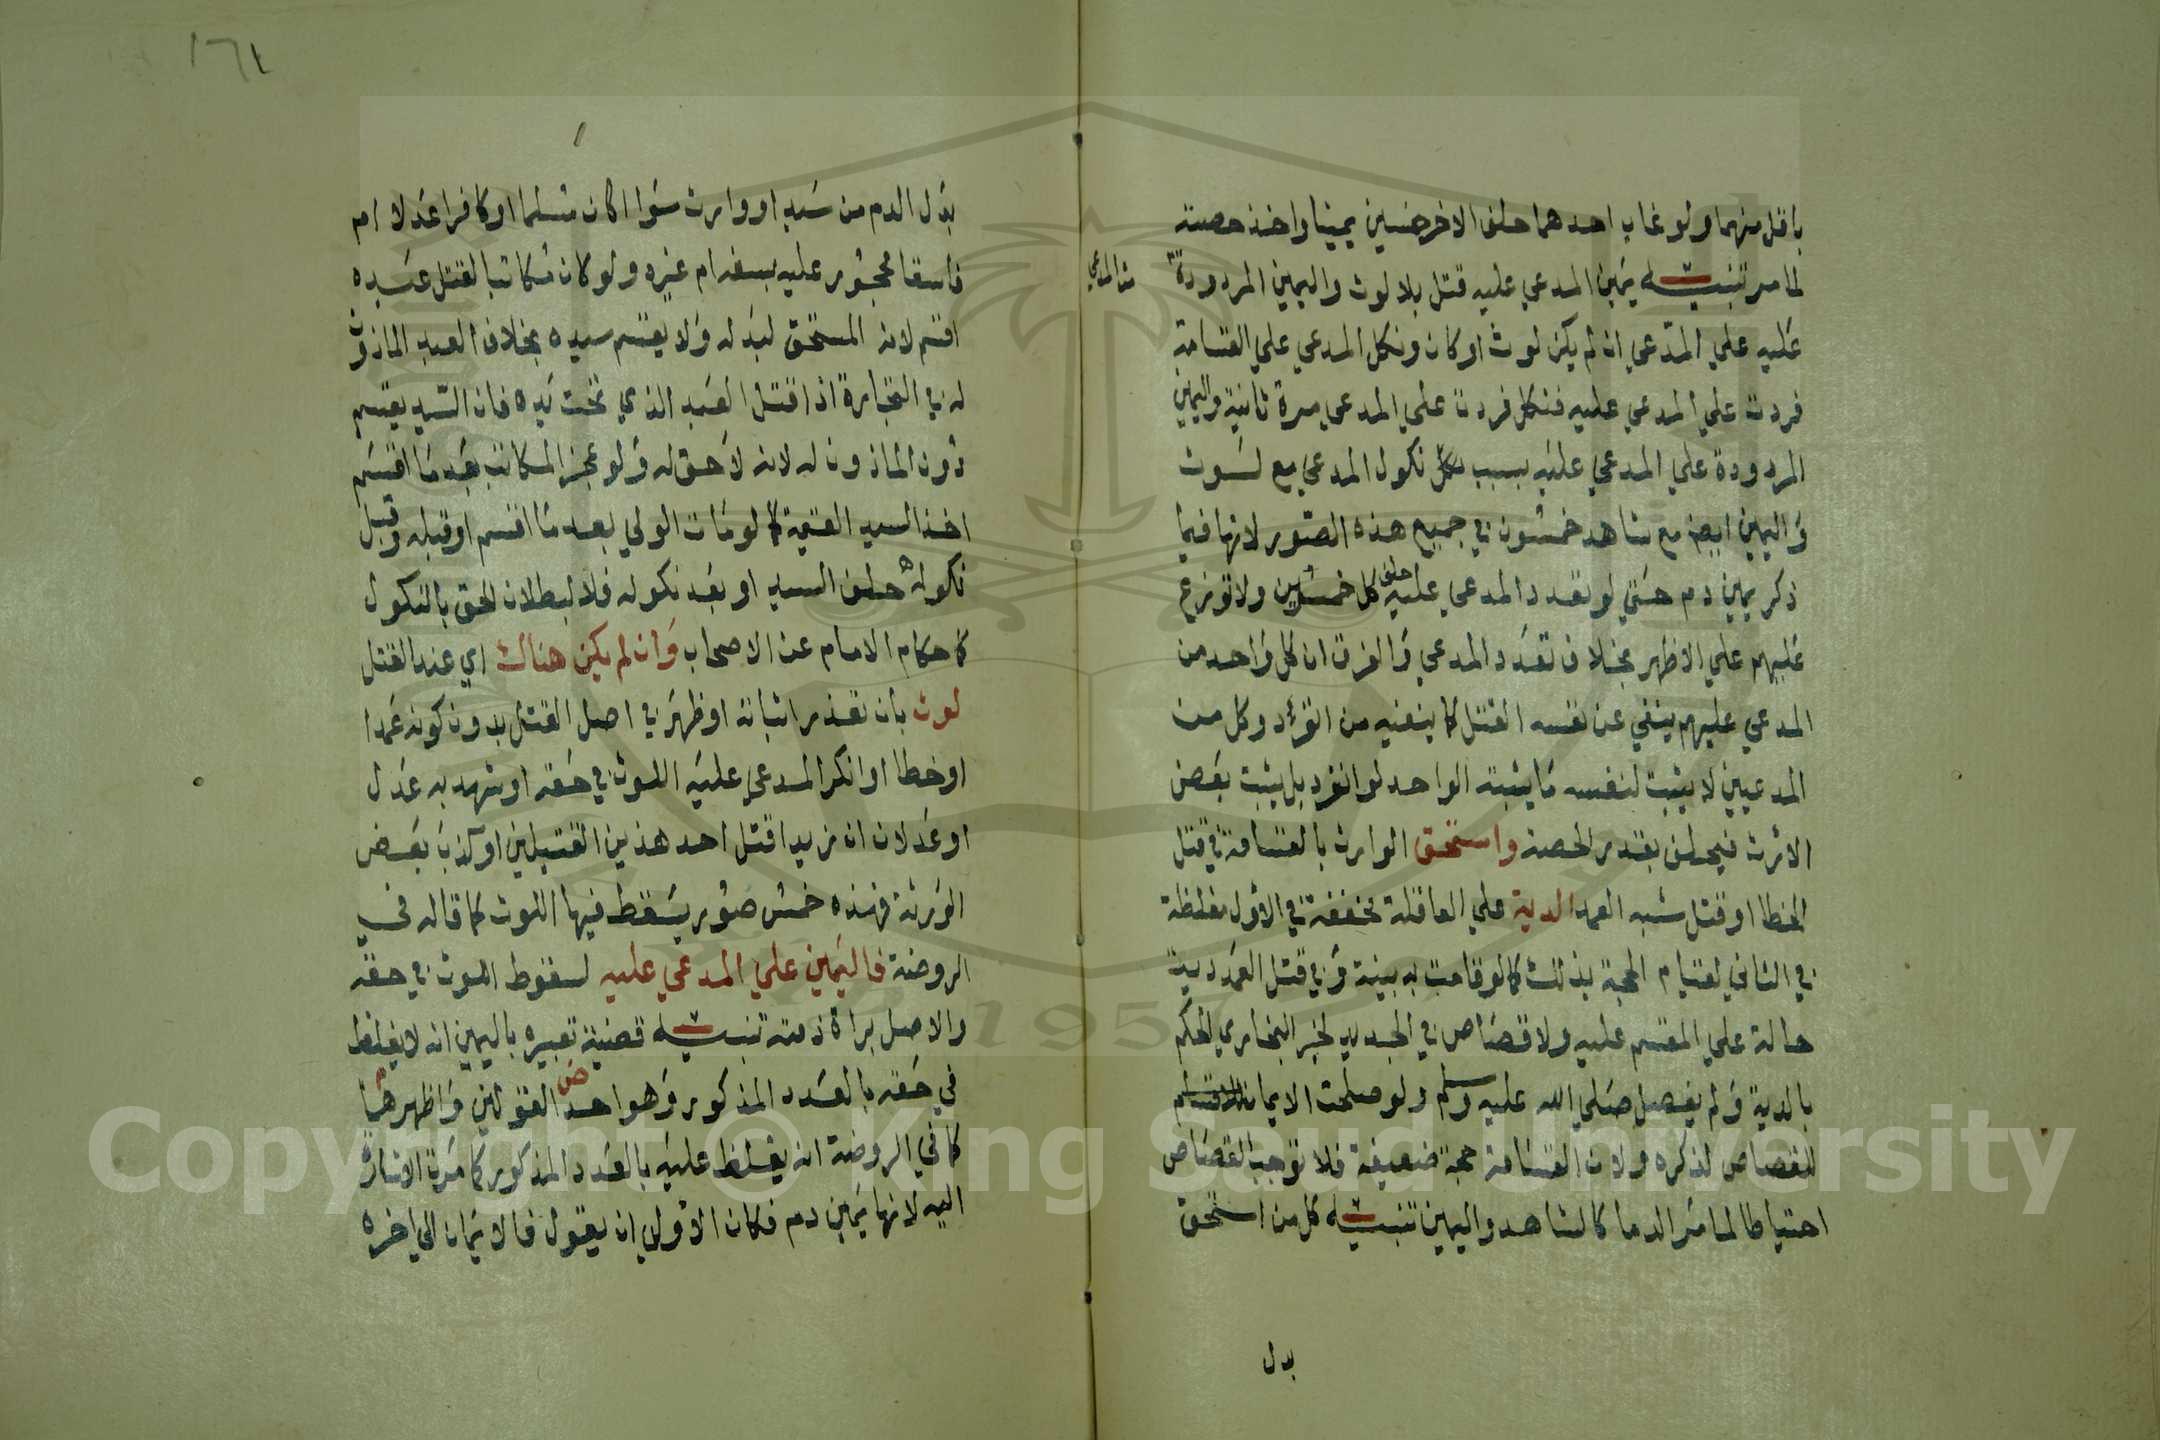 باقل منهما ولو غاب احدهما حلف الاخر خمسين يمينا واخذ حصته
لما مر تنبيه يمين المدعي عليه قتل بلا لوث واليمين المردودة
من المدعي
عليه علي المدعي ان لم يكن لوث او كان ونكل المدعي علي القسامة
فردت علي المدعي عليه فنكل فردت علي المدعي مرة ثانية واليمين
المردودة علي المدعي عليه بسبب نكول المدعي مع لوث
واليمين ايضا مع شاهد خمسون في جميع هذه الصور لانها فيما
ذكر يمين دم حتي لو تعدد المدعي عليه حلف كل خمسين ولا توزع
عليهم علي الاظهر بخلاف تعدد المدعي والفرق ان كل واحد من
المدعي عليهم ينفي عن نفسه القتل كما ينفيه من انفرد وكل من
المدعيين لا يثبت لنفسه ما يثبته الواحد لو انفرد بل يثبت بعض
الارث فيحلف بقدر الحصة واستحق الوارث بالقسامة في قتل
الخطا او قتل شبه العمد الدية علي العاقلة مخففة في الاول مغلظة
في الثاني لقيام الحجة بذلك كما لو قامت به بينة وفي قتل العمد دية
حالة علي المقسم عليه ولا قصاص في الجديد لخبر البخاري الحكم
بالدية ولم يفصل صلي الله عليه وسلم ولو صلحت الايمان
للقصاص لذكره ولان القسامة حجة ضعيفة فلا توجب القصاص
احتياطا لما مر الدما كالشاهد واليمين تنبيه كل من استحق
بدل
١٦٤
بدل الدم من سيد او وارث سوا اكان مسلما او كافرا عدلا ام
فاسقا محجور عليه بسفه ام غيره ولو كان مكاتبا لقتل عبده
اقسم لانه المستحق لبدله ولا يقسم سيده بخلاف العبد الماذون
له في التجارة اذا قتل العبد الذي تحت يده فان السيد يقسم
دون الماذون له لانه لا حق له ولو عجز المكاتب بعد ما اقسم
اخذ السيد القيمة كما لو مات الولي بعد ما اقسم او قبله وقبل
نكوله حلف السيد او بعد نكوله فلا لبطلان الحق بالنكول
كما حكاه الامام عن الاصحاب وان لم يكن هناك اي عند القتل
لوث بان تعذر اثباته او ظهر في اصل القتل بدون كونه عمدا
او خطا او انكر المدعي عليه اللوث في حقه او شهد به عدل
او عدلان ان زيدا قتل احد هذين القتيلين او كذب بعض
الورثة فهذه خمس صور يسقط فيها اللوث كما قاله في
الروضة فاليمين علي المدعي عليه لسقوط اللوث في حقه
والاصل براة ذمته تنبيه قضية تعبيره باليمين انه لا يغلظ
في حقه بالعدد المذكور وهو احد القولين واظهرهما
كما في الروضة انه يغلظ عليه بالعدد المذكور كما مرت الاشارة
اليه لانها يمين دم فكان الاولي ان يقول فالايمان الي اخره